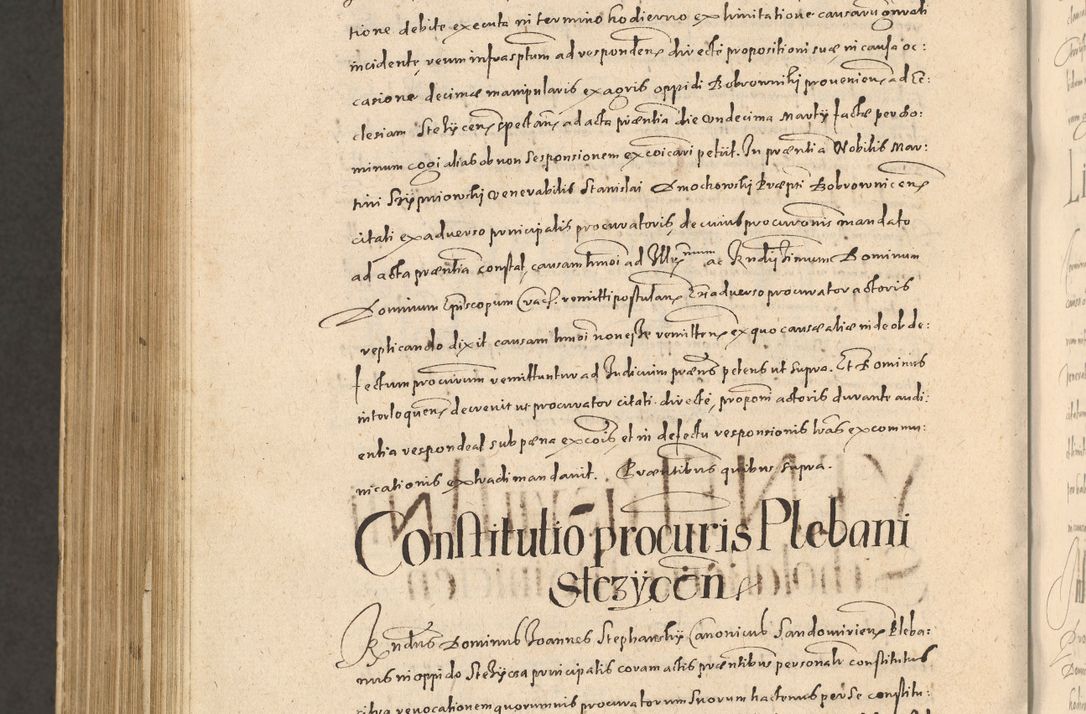 tione debite executa in termino hodierno ex limitatione causarum gnrali
incidente, reum infrasptum ad respondenn directe propositioni suæ in causa oc:
casione decimæ manipularis ex agris oppidi Bobrowniki provenienn ad Ec:
clesiam Stezycenn spectann ad acta præntia die undecima Martÿ factæ per do:
minum cogi alias ob non responsionem excoicari petiit. In præntia Nobilis Mar:
tini venerabilis Stanislai Dmochowski Præpti Bobrownicenn
citati ex adverso principalis procuratoris, de cuius procuronis mandato
ad acta præntia constat, causam hmoi ad Illrmum ac Rndissimum Dominum
Dominum Episcopum Crac. remitti postulann Ex adverso procurator actoris
replicando dixit causam hmoi non esse remittenn ex quo causæ aliæ inde ob de:
fectum procurum remittuntur ad Iudicium præns petens ut supra. Et Dominus
interloquenn decrevit ut procurator citati directe, proponi actoris durante audi:
entia respondeat sub pæna excois et in defectu responsionis lras excommu:
nicationis extradi mandavit. Præntibus quibus supra.
Constitutio procuris Plebani
Stezÿcen
Rndus Dominus Ioannes Stephanskÿ Canonicus Sandomirienn Pleba:
nus in oppido Stezÿcza principalis coram actis præntibus personalr constitutus
citra revocationem quorumvis procuratorum suorum hactenus per se constitu: